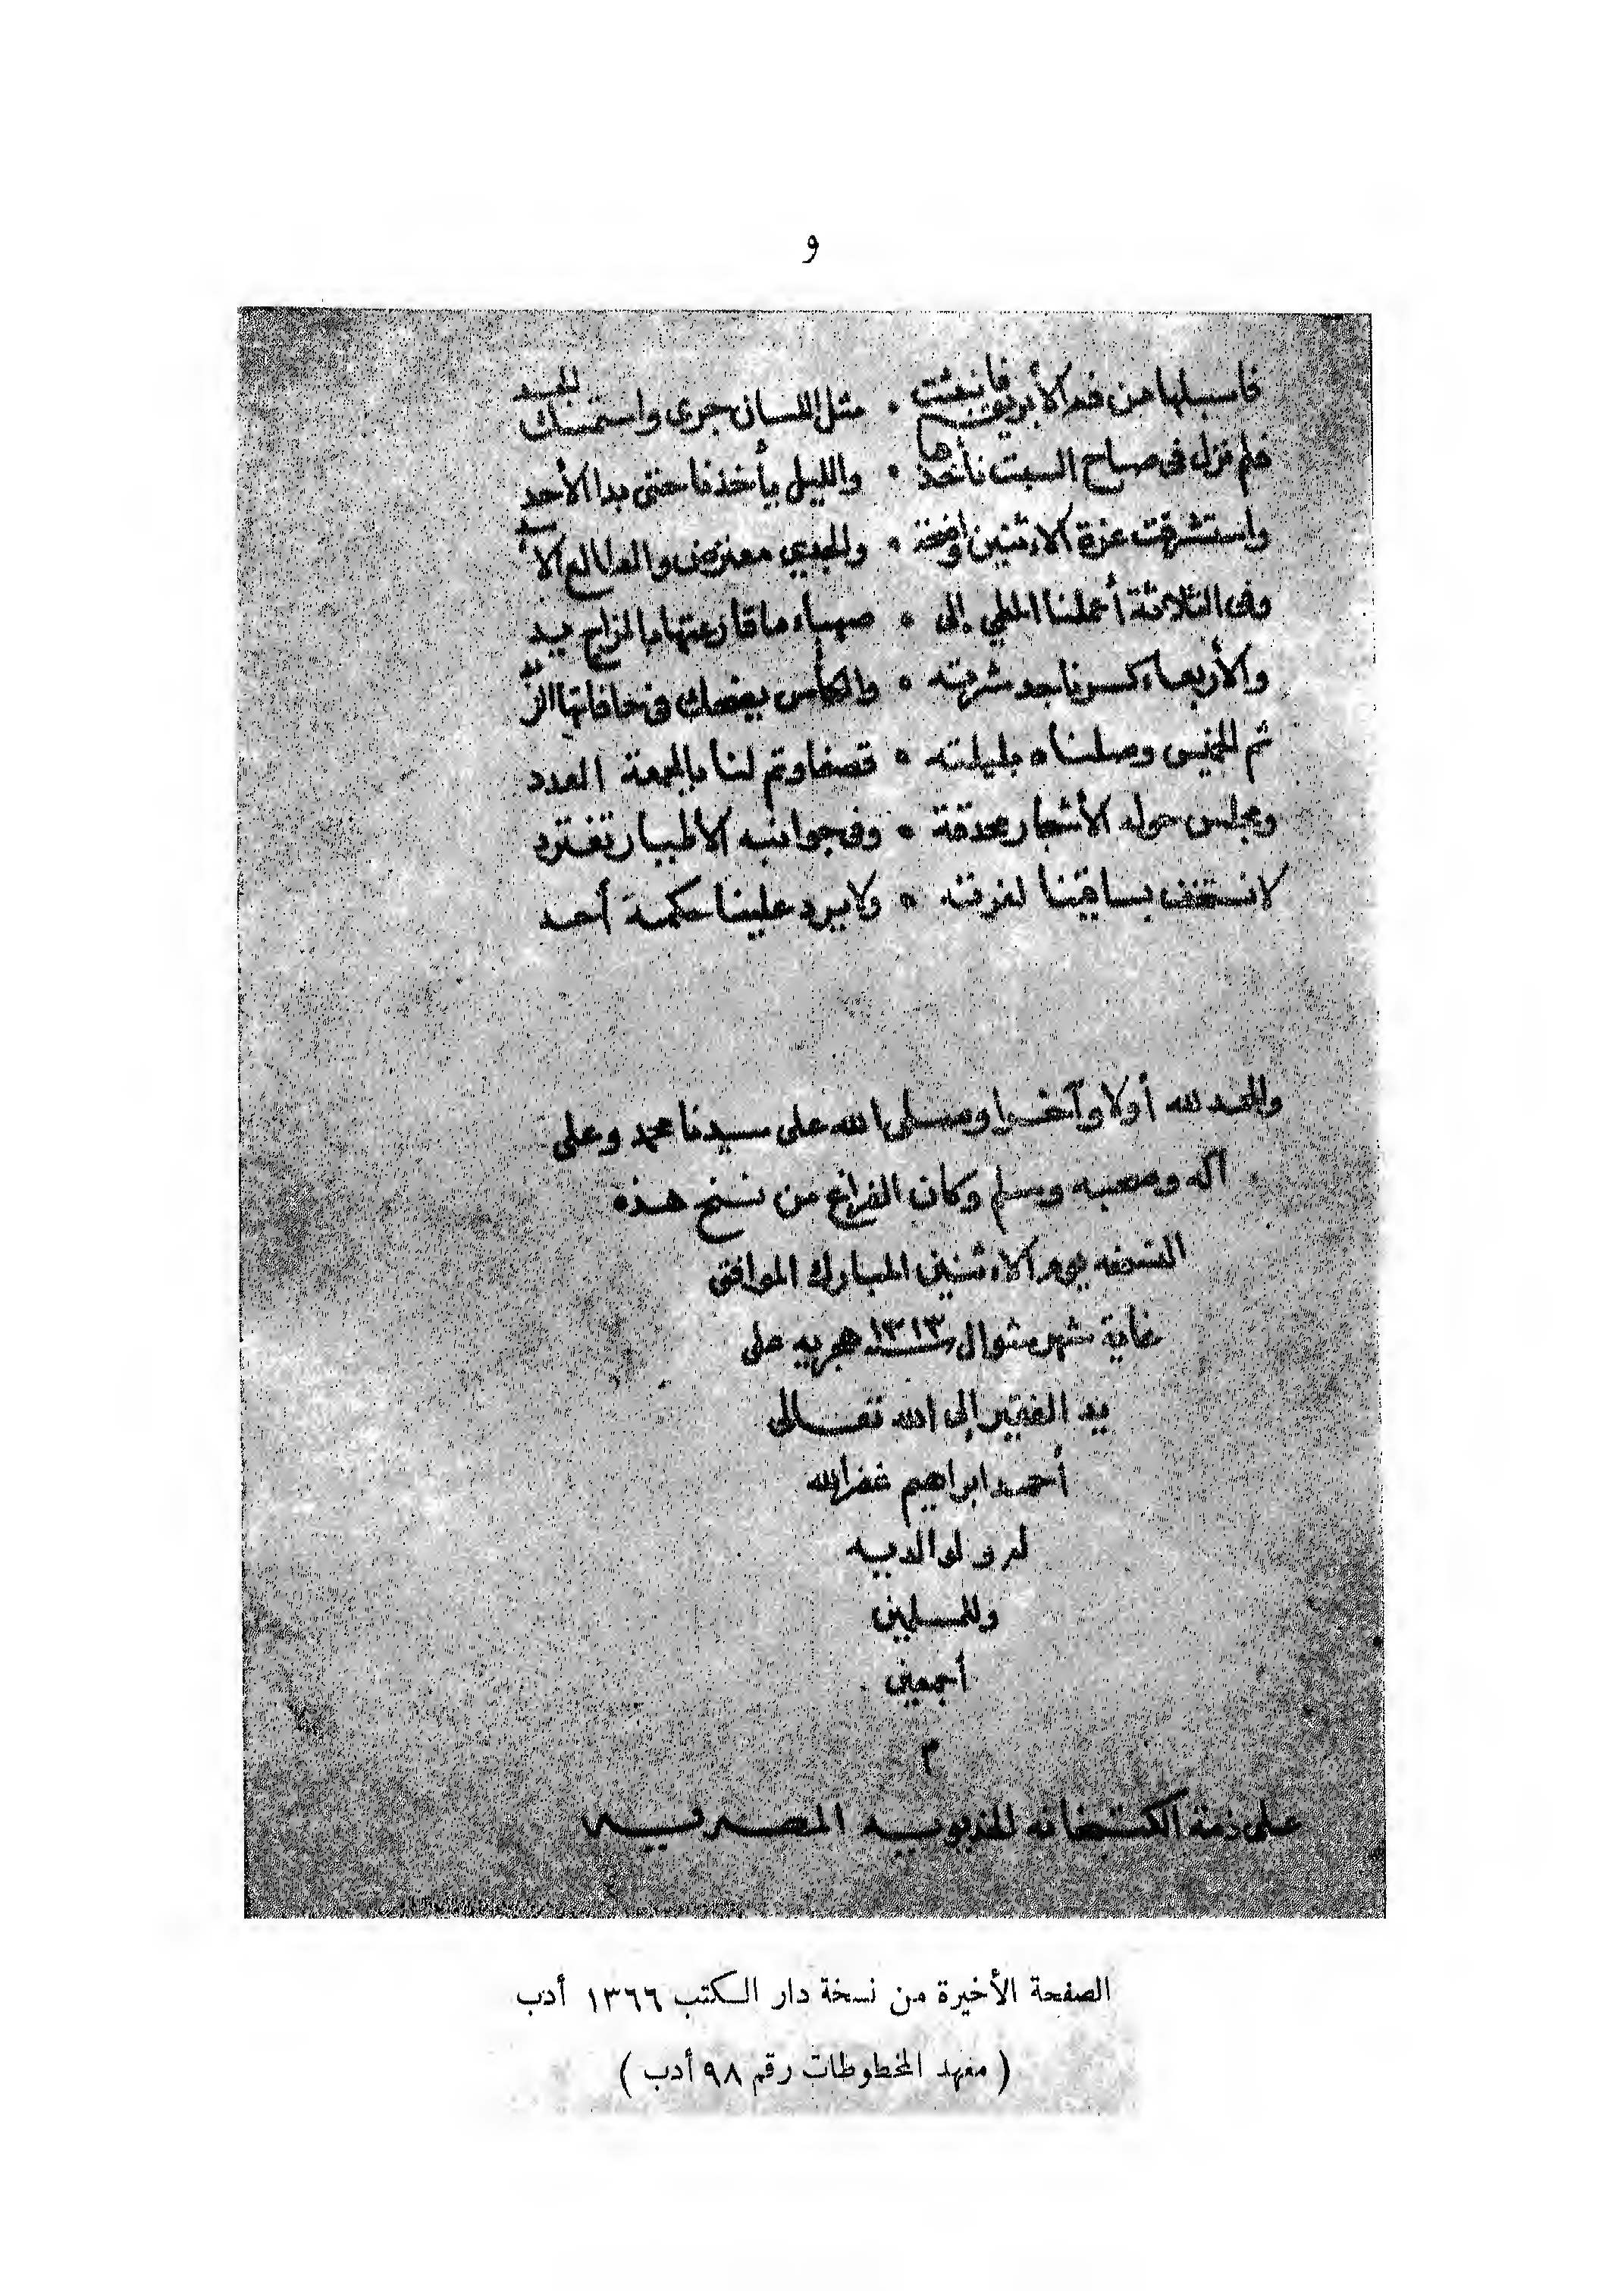 و
فاسبلها من فم الأبريق فانبعثت • مثل اللسان جرى واستمسك الجسد
فلم نزل فى صباح السبت نأخذها • والليل يأخذنا حتى بدا الأحد
واستشرقت غرة الاثنين واضحة • والجدي معترض والطالع الأسد
وفى الثلاثة أعملنا المطي إلى • صهباء ما قارعتها بالمزاج يد
والأربعاء كسرنا حد شرته • والكأس يضحك فى حافاتها الزبد
ثم الخميس وصلناه بليلته • قصفا وتم لنا بالجمعة العدد
ومجلس حوله الأشجار محدقة • وفى جوانبه الأطيار تغترد
لا نستخف بساقينا لغرته • ولا يرد علينا حكمة أحد
والحمد لله أولا وآخرا وصلى الله على سيدنا محمد وعلى
آله وصحبه وسلم وكان الفراغ من نسخ هذه
النسخه يوم الاثنين المبارك الموافق
غاية شهر شوال سنة ١٣١٣ هجريه على
يد الفقير إلى الله تعالى
أحمد ابراهيم غفر الله
له ولوالديه
وللمسلمين
أجمعين
م
على ذمة الكتبخانه الخديويه المصريه
الصفحة الأخيرة من نسخة دار الكتب ١٣٦٦ أدب
( معهد المخطوطات رقم ٩٨ أدب )